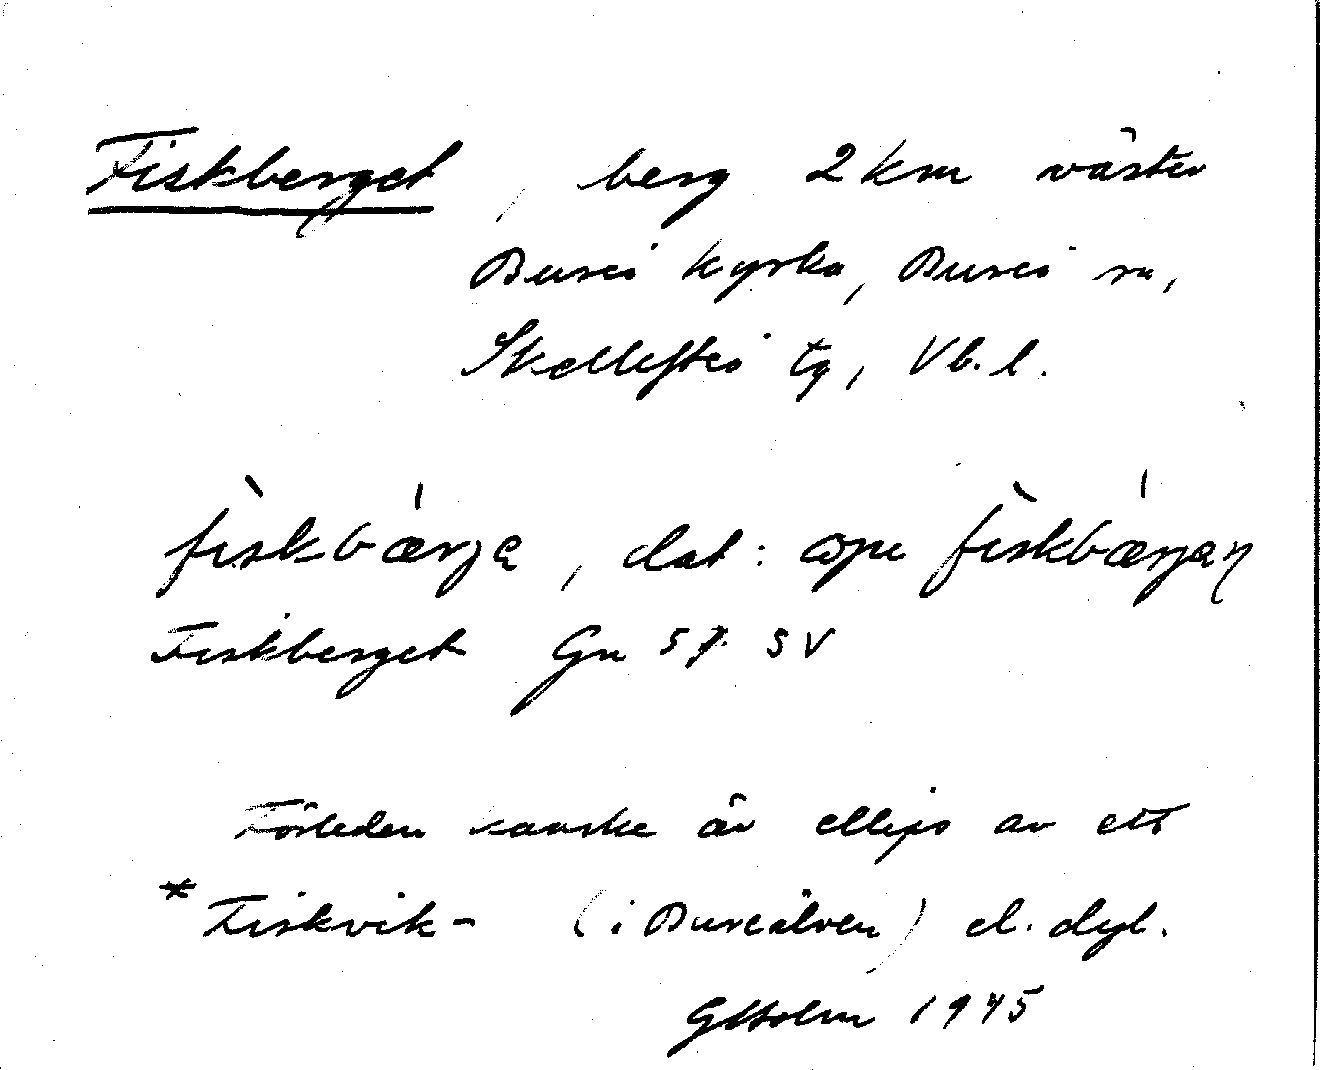 Fiskberget, berg 2 km väster
Bureå kyrka, Bureå sn,
Skellefteå tg, Vb. l.
fìskbæ̀rję, dat: opu fìskbærjęn
Fiskberget Gn 57 SV
Förleden kanske är ellips av ett
*Fiskvik- (i Bureälven) el. dyl.
GHolm 1945